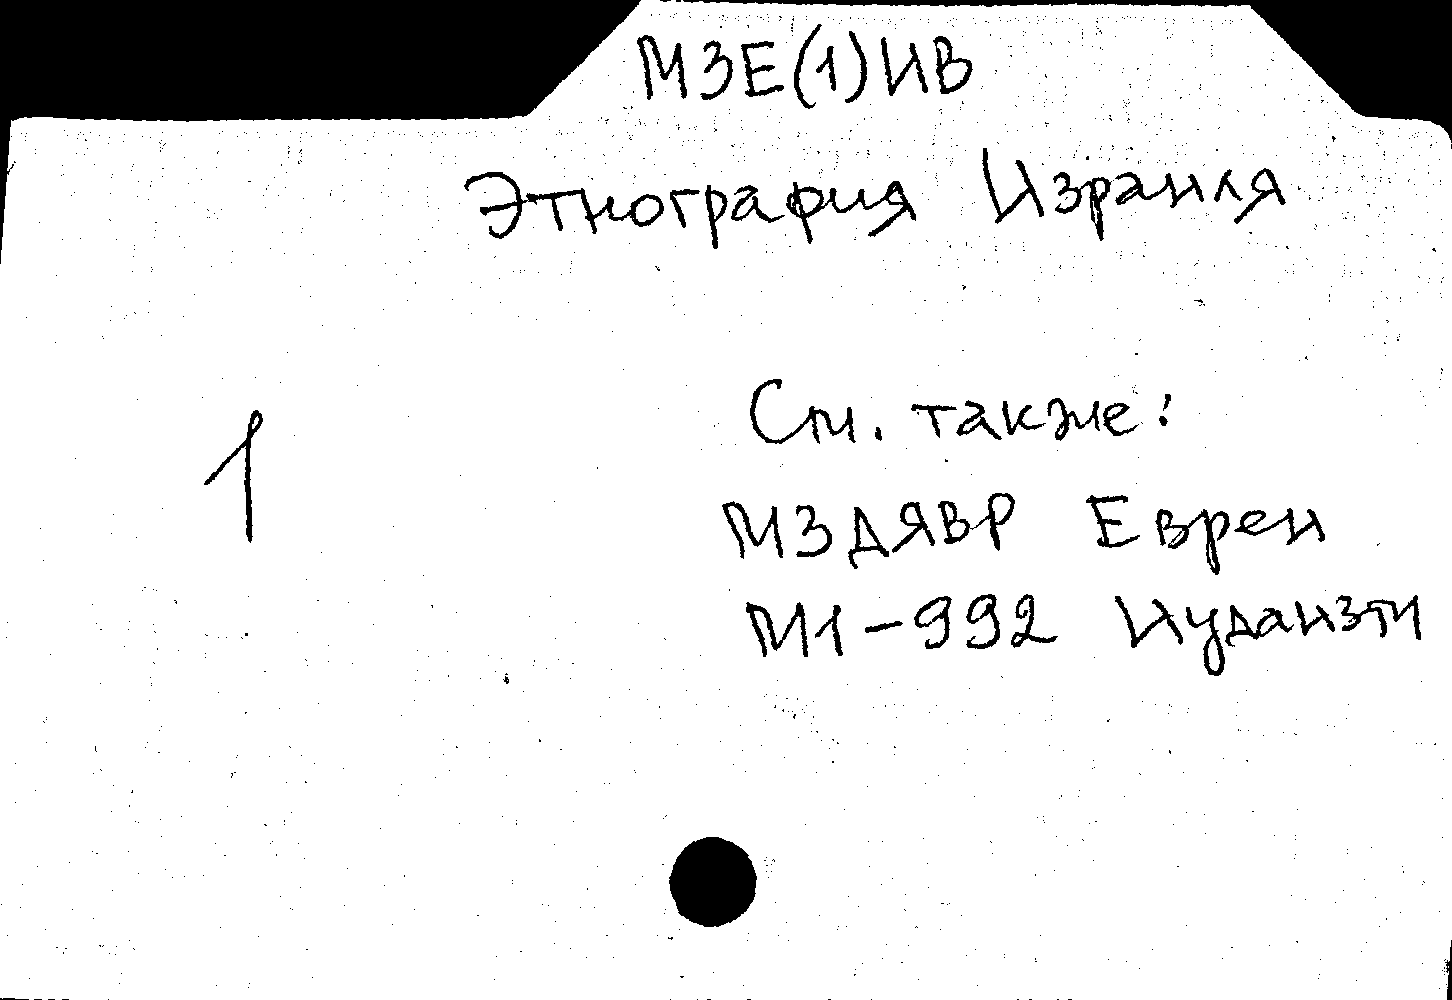 МЗЕ(1)ИВ
Этнография Израиля
См. также:
1
МЗДЯВР Евреи
М1-992 Иудаизм